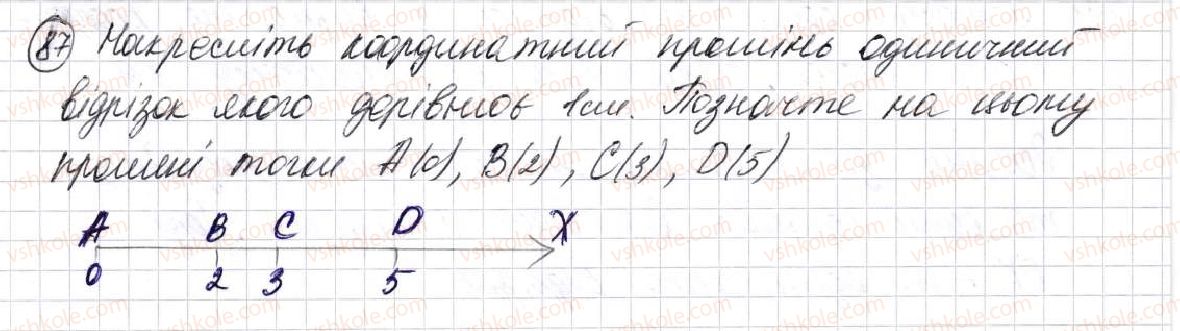 87 Накресліть координатний промінь одиничний
відрізок якого дорівнює 1см. Позначте на цьому
промені точки A(0), B(2), C(3), D(5)
A B C D X
0 2 3 5